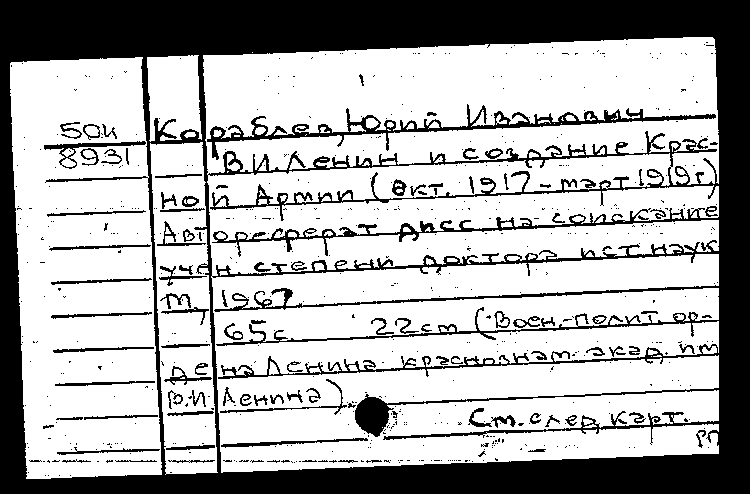 50и Кораблев, Юрий Иванович
8931 В.И. Ленин и создание Крас-
ной Армии (окт. 1917 - март 1919г.)
Автореферат дисс на соискание
учен. степени доктора ист. наук
М, 1967.
65с. 22см (Воен.-полит. ор-
дена Ленина краснознам. акад. им
В.И Ленина)
См. след. карт.
РП